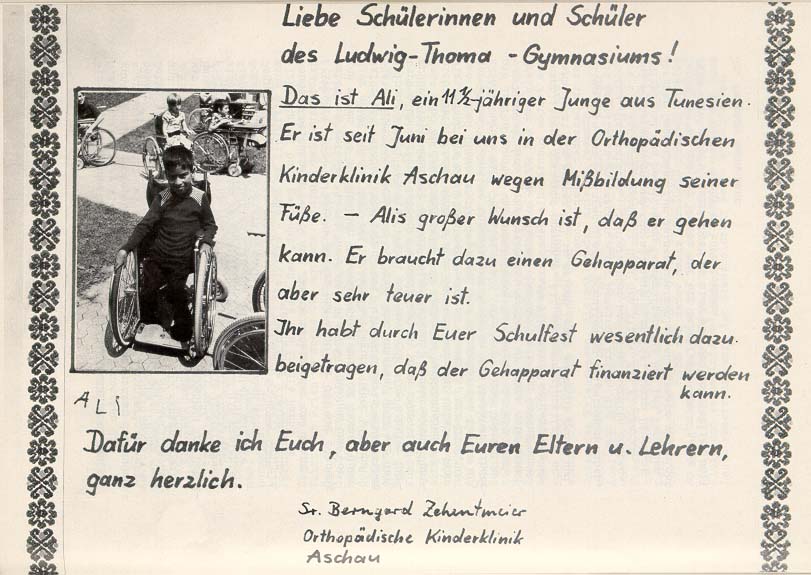 Liebe Schülerinnen und Schüler
des Ludwig-Thoma - Gymnasiums!
Das ist Ali, ein 11 1/2-jähriger Junge aus Tunesien.
Er ist seit Juni bei uns in der Orthopädischen
Kinderklinik Aschau wegen Mißbildung seiner
Füße. - Alis großer Wunsch ist, daß er gehen
kann. Er braucht dazu einen Gehapparat, der
aber sehr teuer ist.
Ihr habt durch Euer Schulfest wesentlich dazu
beigetragen, daß der Gehapparat finanziert werden
kann.
ALi
Dafür danke ich Euch, aber auch Euren Eltern u. Lehrern,
ganz herzlich.
Sr. Berngard Zehentmeier
Orthopädische Kinderklinik
Aschau